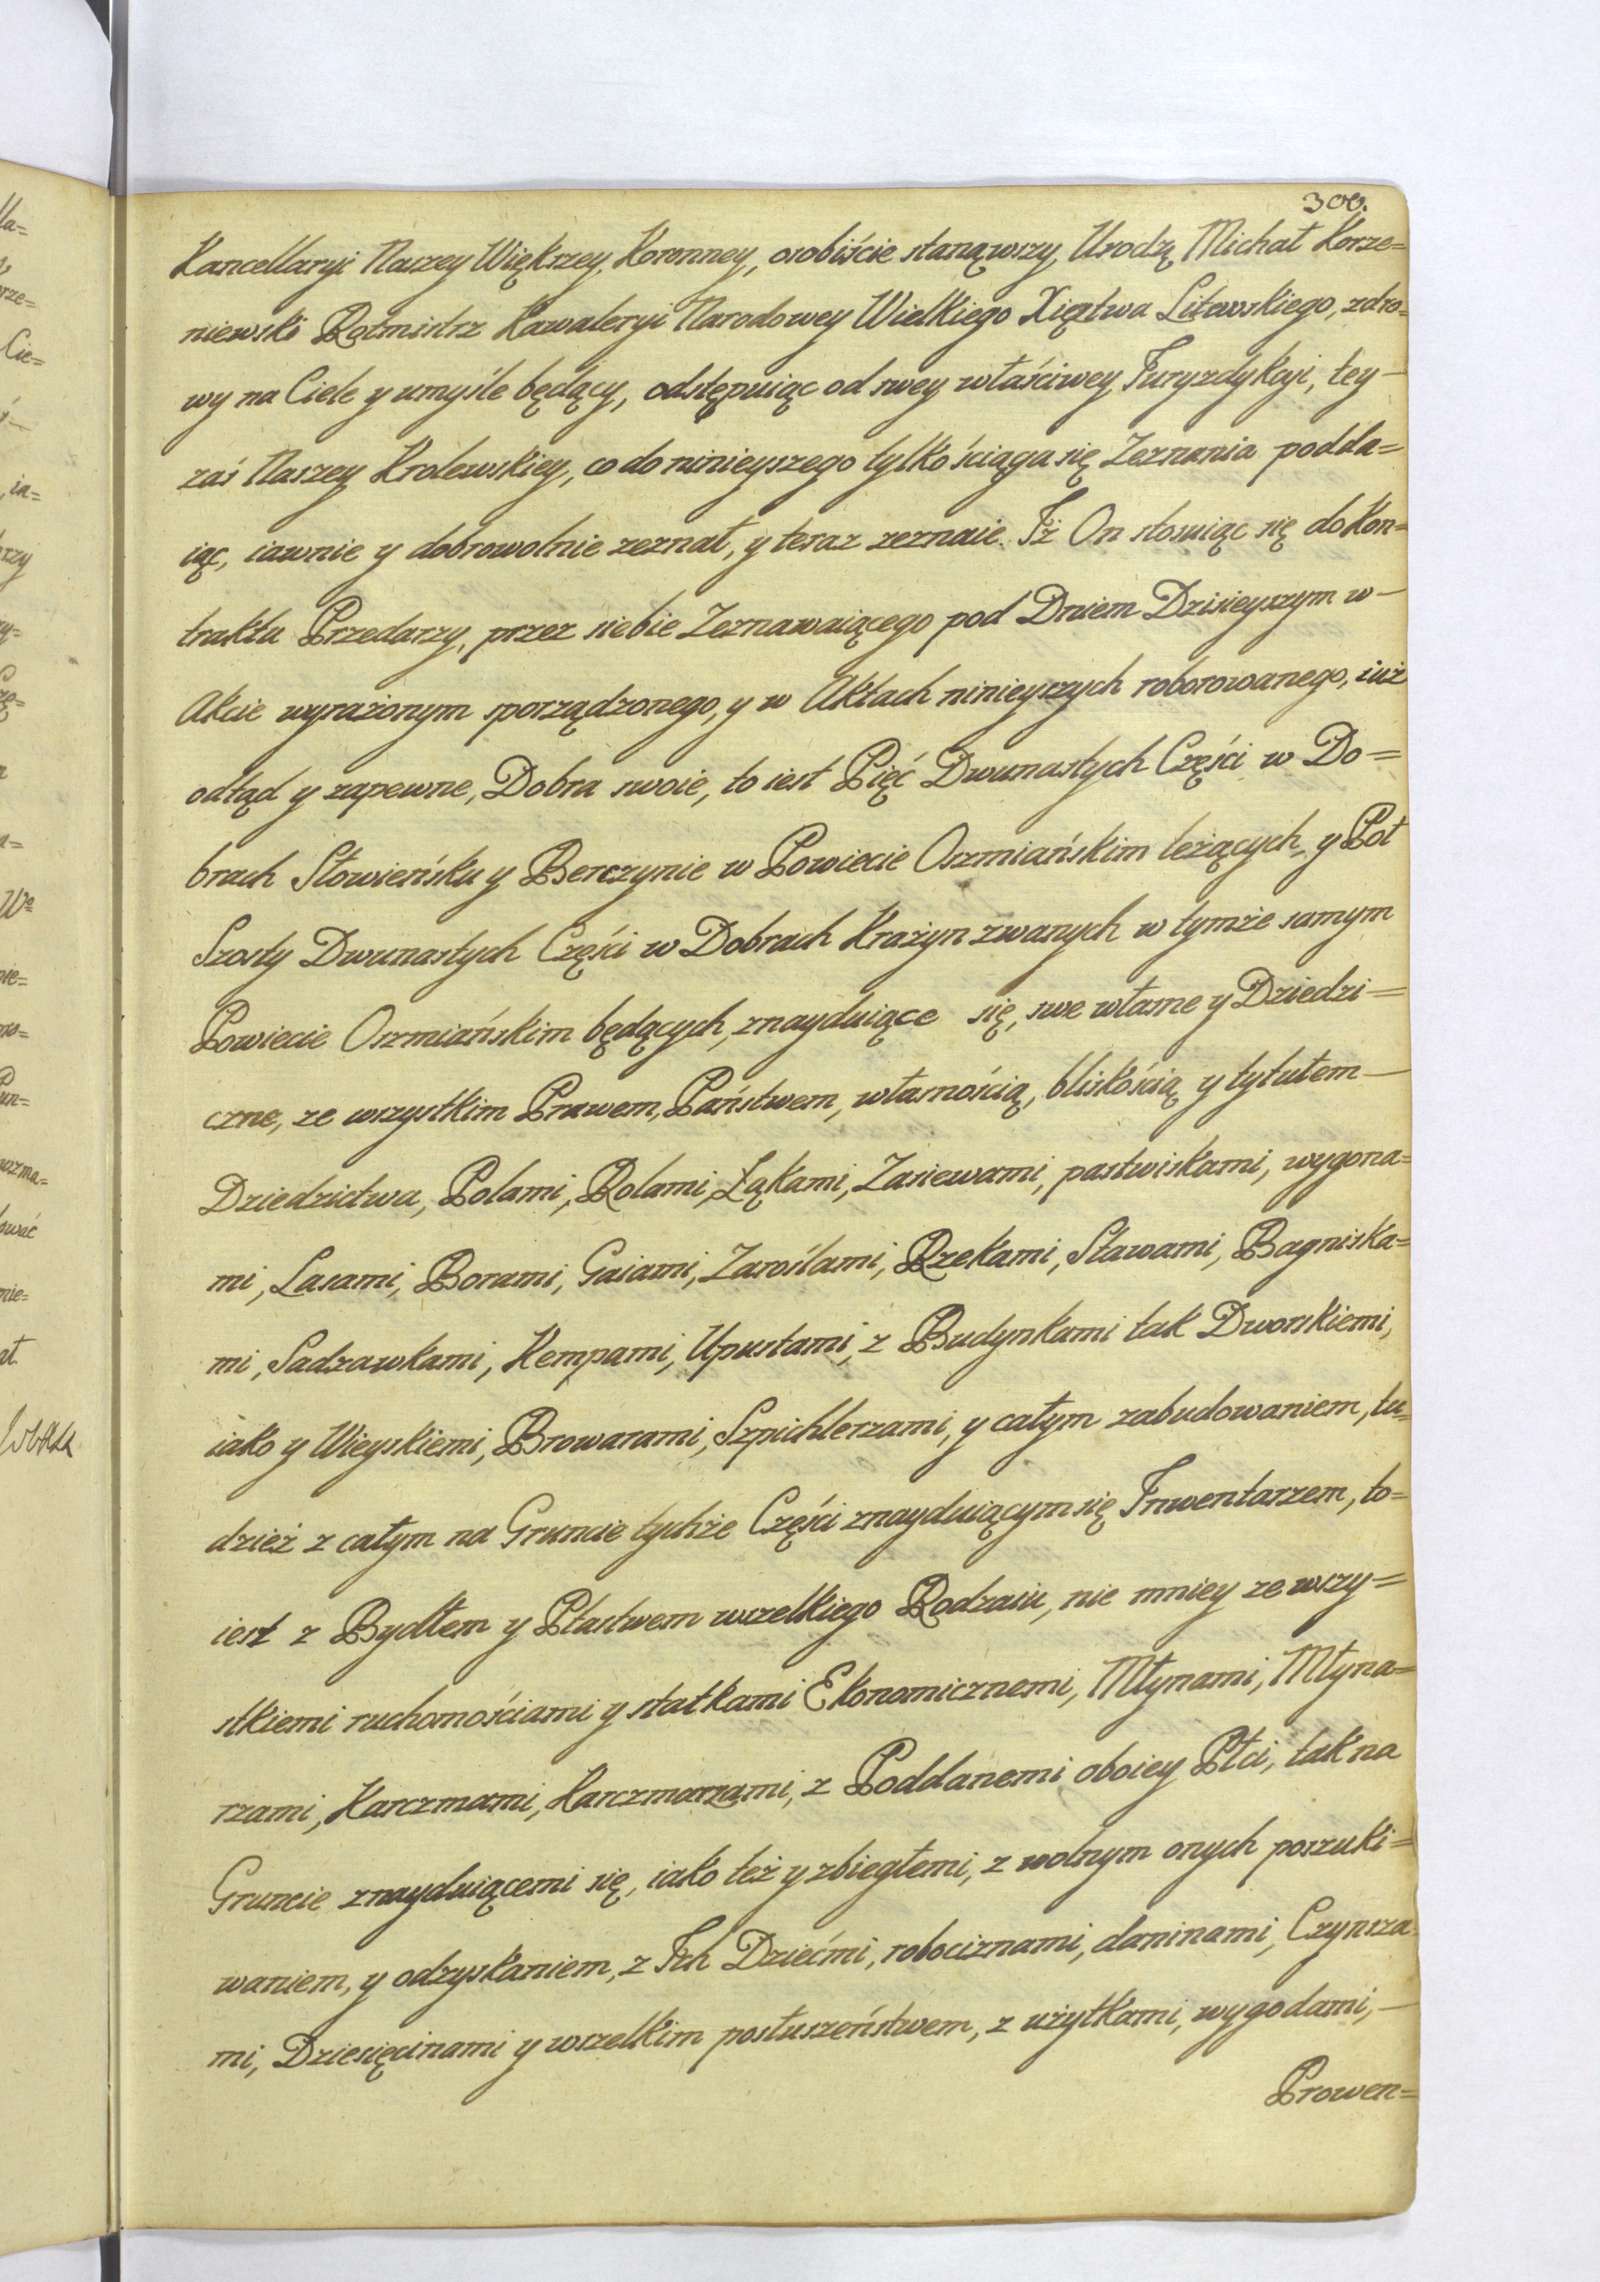 300.
Kancellaryi Naszey Więkrzey, Koronney, osobiście stanąwszy, Urodz. Michał Korze=
niewski Rotmistrz Kawaleryi Narodowey Wielkiego Xięstwa Litewskiego, zdro=
wy na Ciele y umyśle będący, odstępuiąc od swey właściwey Juryzdykcyi, tey—
zaś Naszey Krolewskiey, co do ninieyszego tylko ściąga się Zeznania podda=
iąc, iawnie y dobrowolnie zeznał, y teraz zeznaie. Iż On stosuiąc się do Kon=
traktu Przedarzy, przez siebie Zeznawaiącego pod Dniem Dzisieyszym w—
Akcie wyrażonym sporządzonego, y w Aktach ninieyszych roborowanego, iuż
odtąd y zapewne, Dobra swoie, to iest Pięć Dwunastych Części w Do=
brach Słowieńsku y Berczynie w Powiecie Oszmiańskim leżących, y Poł
Szosty Dwunastych Części w Dobrach Krażyn zwanych w tymże samym
Powiecie Oszmiańskim będących, znayduiące się, swe własne y Dziedzi=
czne, ze wszystkim Prawem, Państwem, własnością, bliskością y tytułem—
Dziedzictwa, Polami, Rolami, Łąkami, Zasiewami, pastwiskami, wygona=
mi, Lasami, Borami, Gaiami, Zaroślami, Rzekami, Stawami, Bagniska=
mi, Sadzawkami, Kempami, Upustami, z Budynkami tak Dworskiemi,
iako y Wieyskiemi, Browarami, Szpichlerzami, y całym zabudowaniem, tu=
dzież z całym na Gruncie tychże Części znayduiącym się Inwentarzem, to=
iest z Bydłem y Ptastwem wszelkiego Rodzaiu, nie mniey ze wszy=
stkiemi ruchomościami y statkami Ekonomicznemi, Młynami, Młyna=
rzami, Karczmami, Karczmarzami, z Poddanemi oboiey Płci, tak na
Gruncie znayduiącemi się, iako też y zbiegłemi, z wolnym onych poszuki=
waniem, y odzyskaniem, z Ich Dziećmi, robociznami, daninami, Czynsza
mi, Dziesięcinami y wszelkim posłuszeństwem, z użytkami, wygodami,—
Prowen=